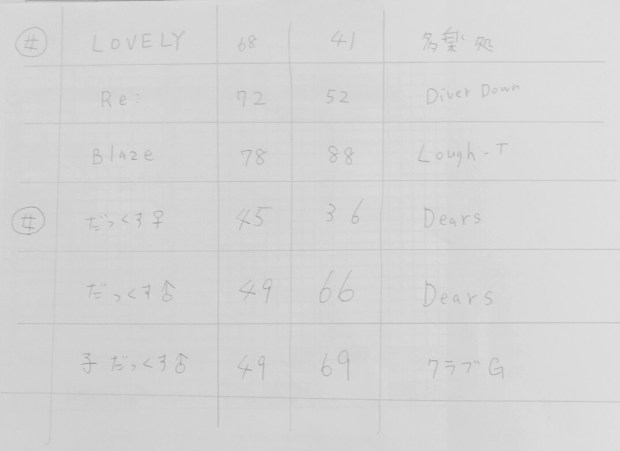 ㊛ LOVELY 68 41 多楽処
Re: 72 52 Diver Down
Blaze 78 88 Lough-T
㊛ だっくす♀ 45 36 Dears
だっくす♂ 49 66 Dears
子だっくす♂ 49 69 クラブG